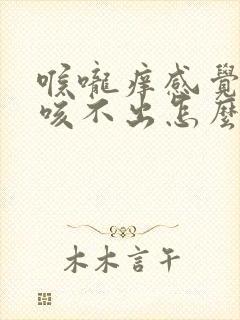 喉嚨痒感覺
咳不出怎麼
木木言午